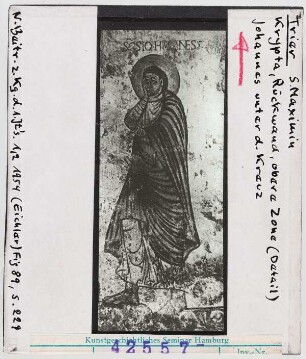 Trier S. Maximin
Krypta, Rückwand, obere Zone (Detail)
Johannes unter d. Kreuz
N. Beitr. z. Kg. d. 1. Jts. 1/2 1954 (Eichler) Fig 89, S. 229
Kunstgeschichtliches Seminar Hamburg
42557
Inv.-Nr.